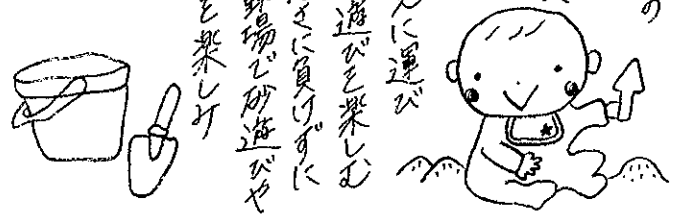 の
んに運び
遊びを楽しむ
さに負けずに
場で砂遊びや
を楽しみ